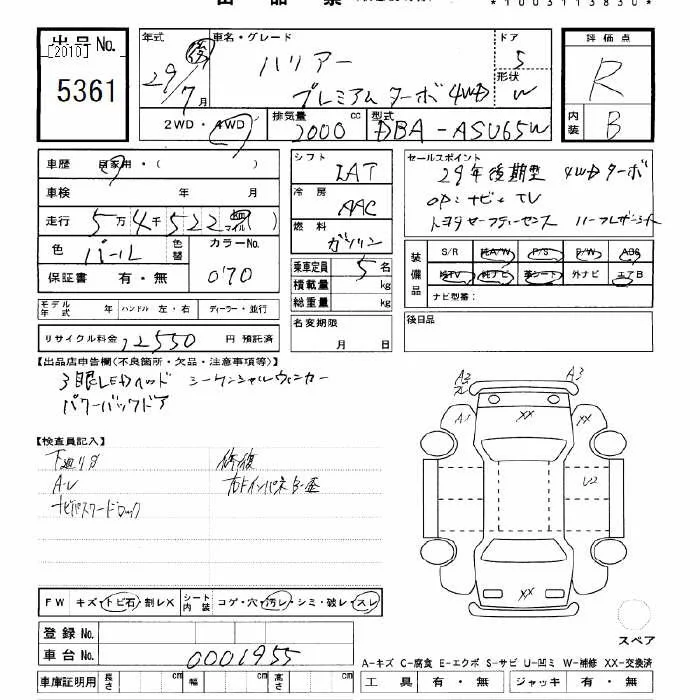 出品No. [2010] 5361
年式 29 後 7月
車名・グレード ハリアー プレミアム ターボ 4WD
ドア 5
形状 W
評価点 R
内装 B
2WD・4WD
排気量 2000 cc
型式 DBA-ASU65W
車歴 自家用・( )
車検 年 月
走行 5万4千522
色 パール
色替
カラーNo. 070
保証書 有・無
シフト IAT
冷房 AAC
燃料 ガソリン
乗車定員 5名
積載量 kg
総重量 kg
セールスポイント
29年後期型 4WDターボ
OP:ナビ+TV
トヨタセーフティーセンス ハーフレザーシート
装備品
S/R 純A/W P/S P/W ABS
純TV 純ナビ 革シート 外ナビ エアB
ナビ型番:
モデル年式 年
ハンドル 左・右
ディーラー・並行
名変期限 月 日
後日品
リサイクル料金 12550 円 預託済
【出品店申告欄(不良箇所・欠品・注意事項等)】
3眼LEDヘッド シーケンシャルウィンカー
パワーバックドア
【検査員記入】
下廻りサ 修復
A-U
ナビパスワードロック
A2
A3
A1
XX
U2
XX
FW キズ・トビ石・割レX
シート内装 コゲ・穴・汚レ・シミ・破レ・スレ
スペア
登録No.
車台No. 0001955
A-キズ C-腐食 E-エクボ S-サビ U-凹ミ W-補修 XX-交換済
車庫証明用 長さ cm 幅 cm 高さ cm
工具 有・無 ジャッキ 有・無